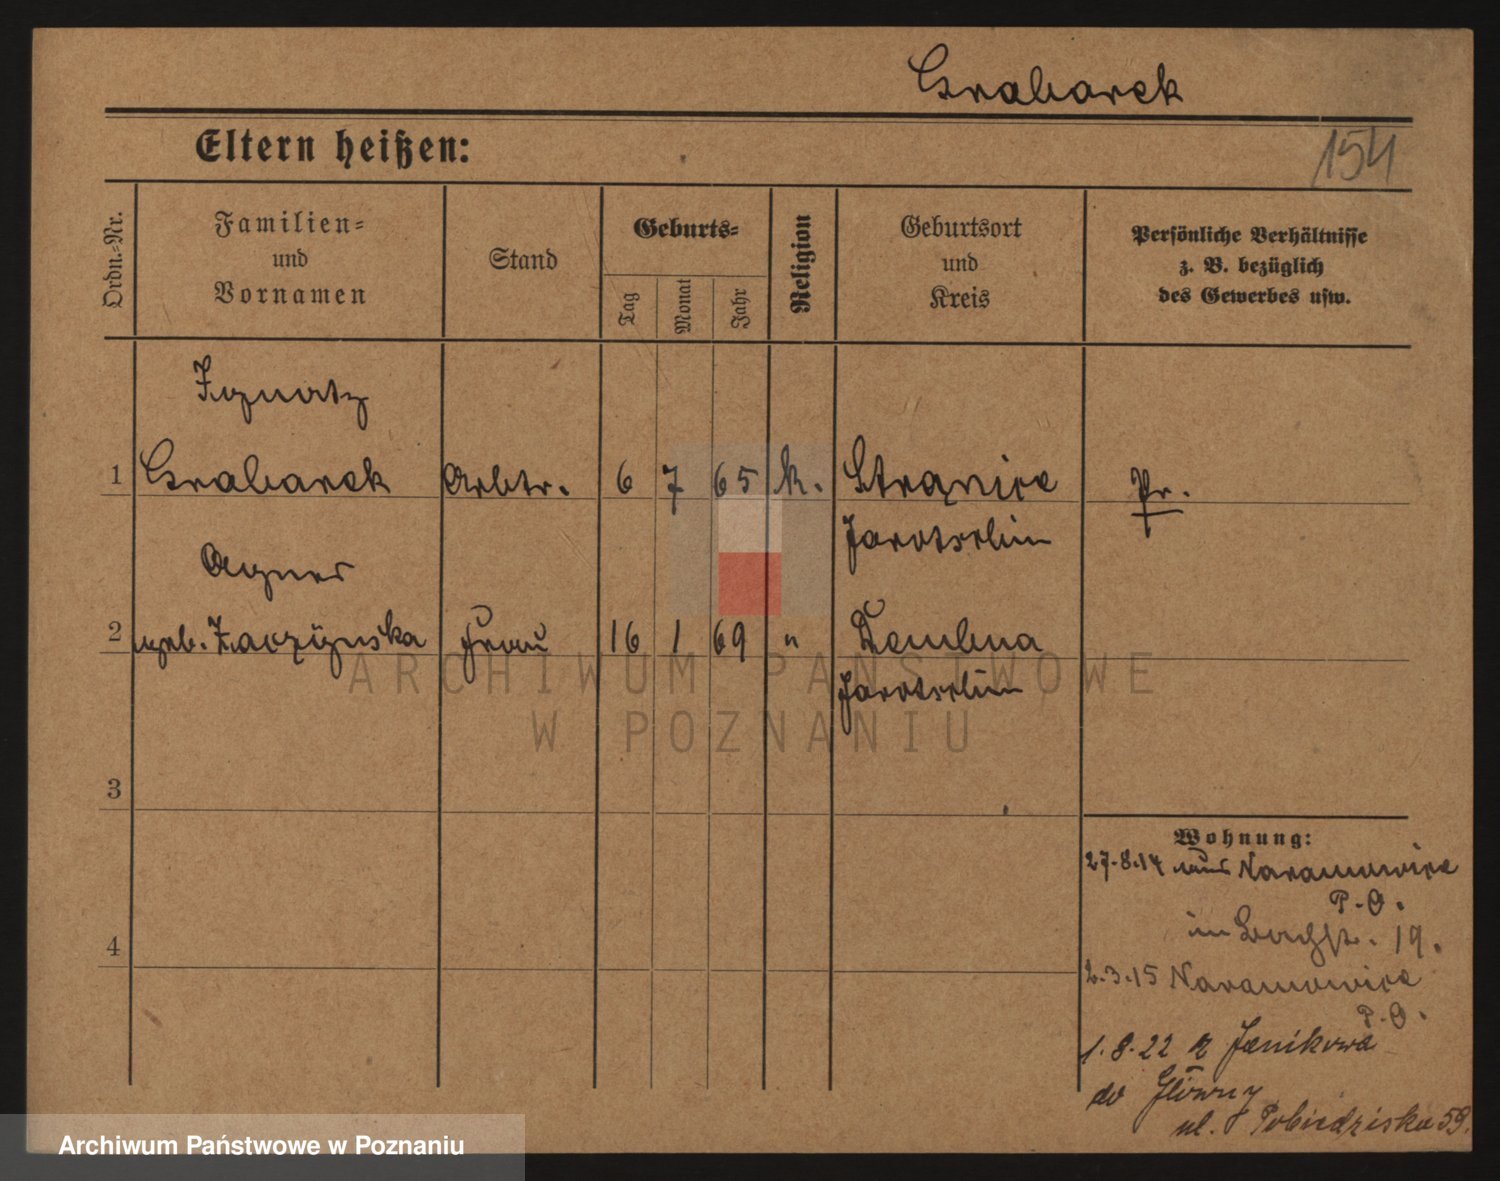 Grabarek
Eltern heißen:
154
Ordn.-Nr.
Familien-
und
Vornamen
Stand
Geburts-
Tag
Monat
Jahr
Religion
Geburtsort
und
Kreis
Persönliche Verhältnisse
z. B. bezüglich
des Gewerbes usw.
Ignatz
1 Grabarek Arbtr. 6 7 65 k. Stramice Pr.
Jarotschin
Agnes
2 geb. Zaczÿnska Frau 16 1 69 " Dembna
Jarotschin
3
4
Wohnung:
27.8.14 aus Naramowice
P.O.
in Bachstr. 19.
2.3.15 Naramowice
P.O.
1.8.22 z Janikowa
do Główny
ul. Pobiedziska 59.
ARCHIWUM PAŃSTWOWE
W POZNANIU
Archiwum Państwowe w Poznaniu